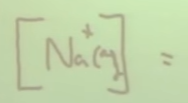 [Na⁺(aq)] =